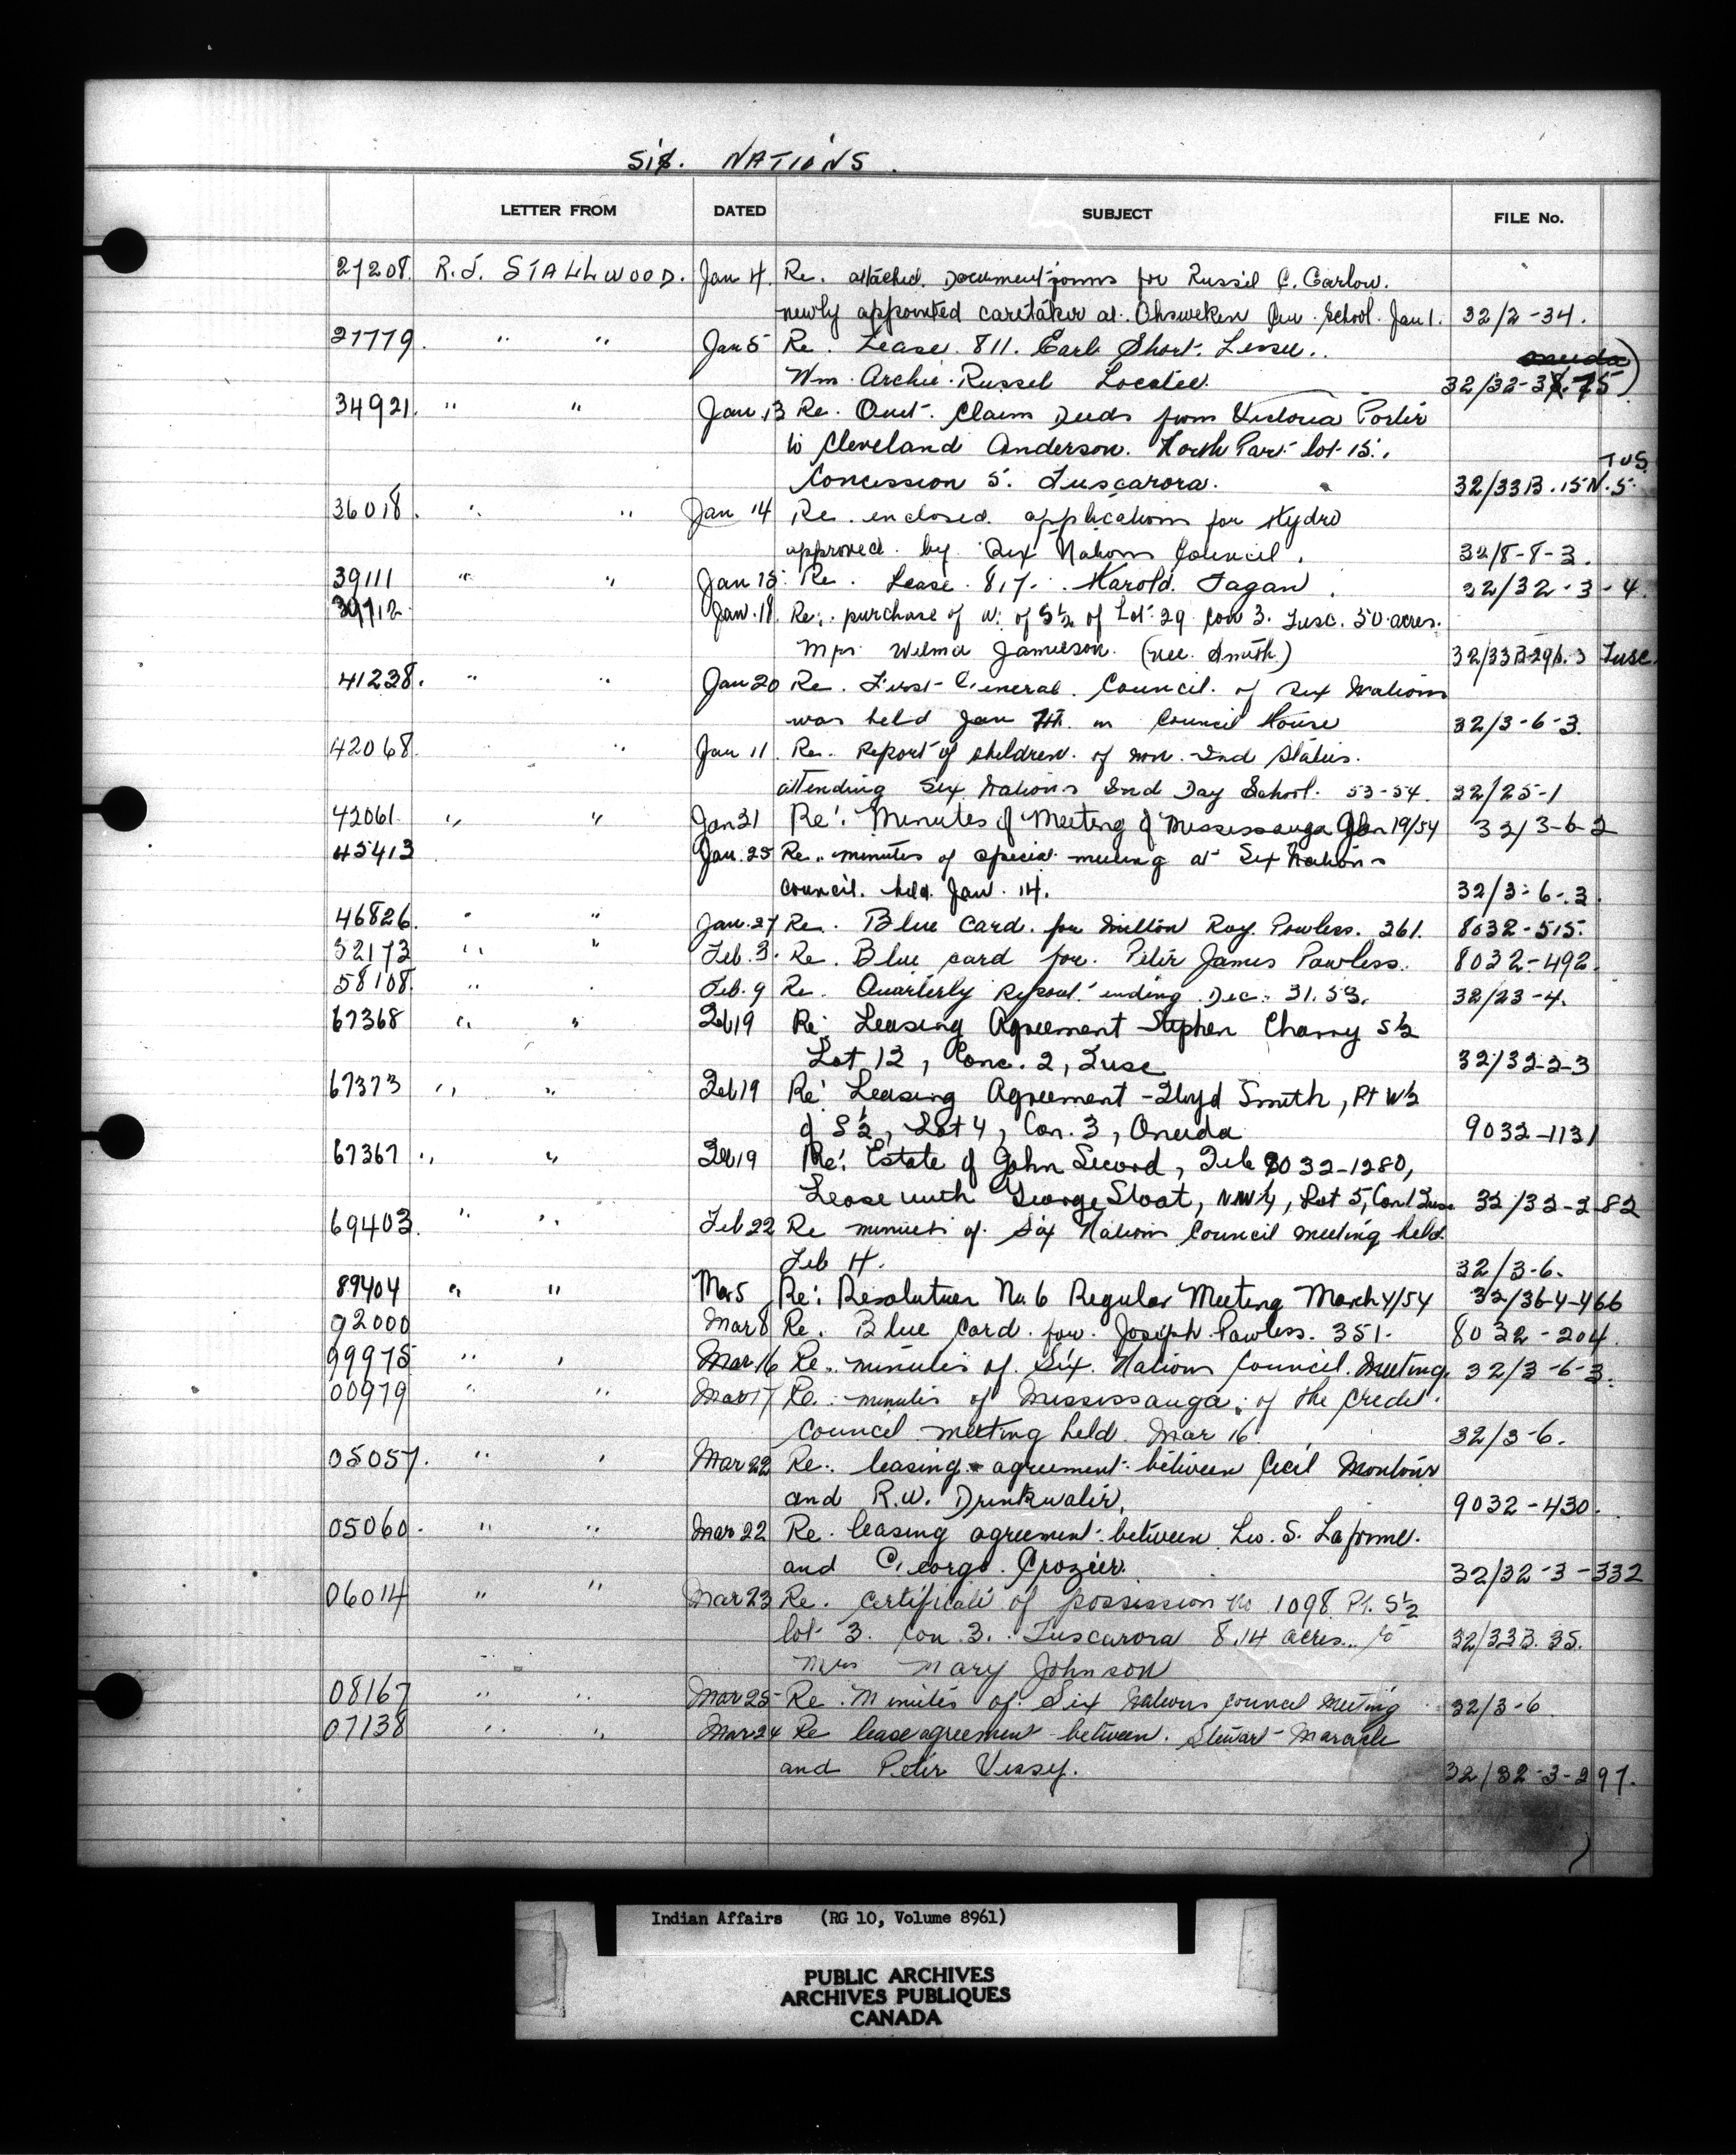 Six. NATIONS.
LETTER FROM DATED SUBJECT FILE No.
27208. R.J. STALLWOOD. Jan 4. Re. attached Document forms for Russil C. Garlow.
newly appointed caretaker at Ohsweken School. Jan 1. 32/2-34.
27779. " " Jan 5 Re. Lease 811. Earl Short. Lessee.
Wm. Archie Russel Locatee. 32/32-3-75
34921. " " Jan 13 Re. Quit Claim Deeds from Victoria Porter
to Cleveland Anderson. North Part lot 15.,
Concession 5. Tuscarora. 32/33B.15N.5. TUS
36018. " " Jan 14 Re. enclosed applications for Hydro
approved by Six Nations Council. 32/8-8-3.
39111 " " Jan 15. Re. Lease 817. Harold Fagan. 32/32-3-4.
39712. Jan. 18. Re: purchase of W. of S½ of Lot 29 Con 3. Tusc. 50 acres.
Mrs. Wilma Jamieson. (nee Smith) 32/33B-29 3 Tusc.
41238. " " Jan 20 Re. First General Council of Six Nations
was held Jan 7th. in Council House 32/3-6-3.
42068. " Jan 11. Re. Report of children of non-Ind Status.
attending Six Nations Ind Day School. 53-54. 32/25-1
42061 " " Jan 21 Re: Minutes of Meeting of Mississauga Jan 19/54 32/3-6-2
45413 Jan. 25 Re. minutes of special meeting at Six Nations
council. held Jan. 14. 32/3-6-3.
46826. " " Jan. 27 Re. Blue Card for Milton Roy Powless. 361. 8032-515.
52173 " " Feb. 3. Re. Blue card for Peter James Powless. 8032-492.
58108. " Feb. 9 Re. Quarterly Report ending Dec. 31. 53. 32/23-4.
67368 " " Feb 19 Re: Leasing Agreement Stephen Charny S½
Lot 12, Conc. 2, Tusc 32/32-2-3
67373 " " Feb 19 Re: Leasing Agreement - Lloyd Smith, Pt W½
of S½, Lot 4, Con. 3, Oneida 9032-1131
67367 " " Feb 19 Re: Estate of John Secord, File 8032-1280,
Lease with George Sloat, NW¼, Lot 5, Con 1 Tusc 32/32-2-82
69403. " " Feb 22 Re minutes of Six Nations Council meeting held
Feb 4. 32/3-6.
89404 " " Mar 5 Re: Resolution No. 6 Regular Meeting March 4/54 32/36-4-466
92000 Mar 8 Re. Blue Card for Joseph Powless. 351. 8032-204.
99975 " " Mar 16 Re. minutes of Six Nations Council Meeting. 32/3-6-3.
00979 " " Mar 17 Re. minutes of Mississauga of the Credit
Council meeting held Mar 16 32/3-6.
05057. " " Mar 22 Re. leasing agreement between Cecil Montour
and R.W. Drinkwater. 9032-430.
05060. " " Mar 22 Re. leasing agreement between Leo. S. Laforme.
and George Crozier. 32/32-3-332
06014 " " Mar 23 Re. certificate of possession No 1098 Pt. S½
lot 3. Con 3. Tuscarora 8.14 acres. to 32/33B.35.
Mrs Mary Johnson
08167 " " Mar 25 Re. Minutes of Six Nations Council Meeting 32/3-6.
07138 " " Mar 24 Re lease agreement between Stewart Maracle
and Peter Vessy. 32/32-3-297.
Indian Affairs (RG 10, Volume 8961)
PUBLIC ARCHIVES
ARCHIVES PUBLIQUES
CANADA